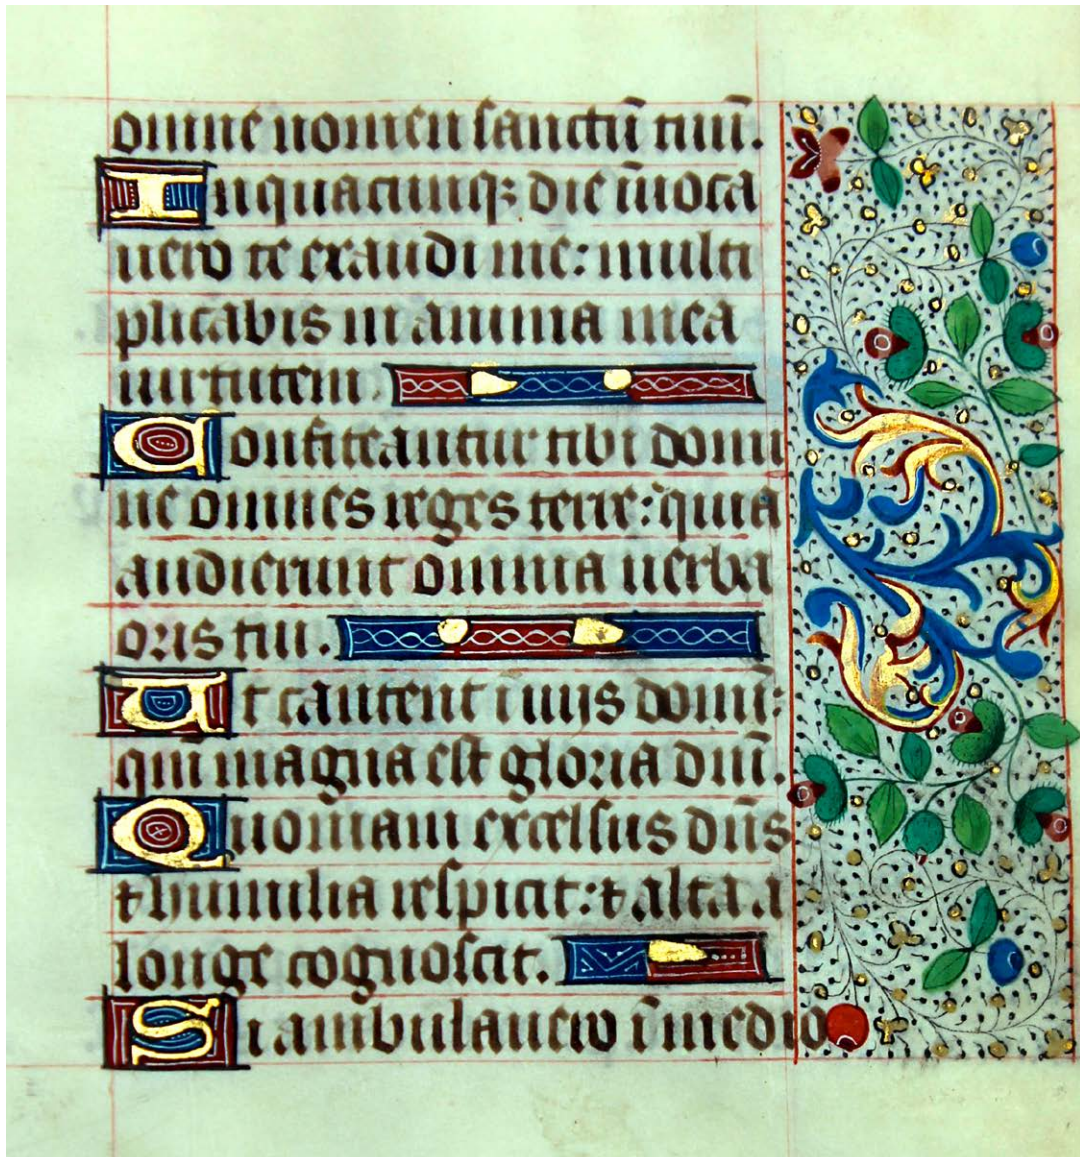 omne nomen sanctū tuū.
In quacumqꝫ die īuoca
uero te exaudi me: multi
plicabis in anima mea
uirtutem.
Confiteantur tibi domi
ne omnes reges terre: quia
audierunt omnia uerba
oris tui.
Et cantent ī uijs domī:
qm̄ magna est gloria dnī.
Quoniam excelsus dn̄s
⁊ humilia respicit: ⁊ alta a
longe cognoscit.
Si ambulauero ī medio